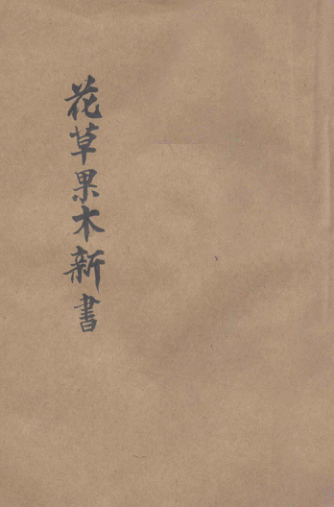 花草果木新書